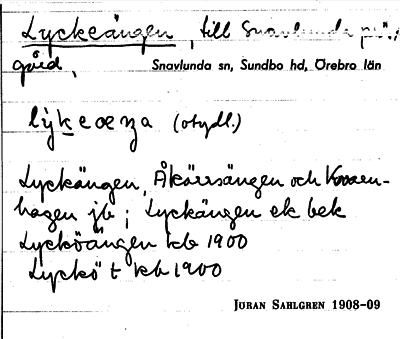 Lyckeängen, till Snavlunda präst-
gård,
Snavlunda sn, Sundbo hd, Örebro län
(otydl.)
Lyckängen, Åkärrsängen och
hagen jb; Lyckängen ek bek
Lycköängen kb 1900
Lyckö t kb 1900
JÖRAN SAHLGREN 1908-09